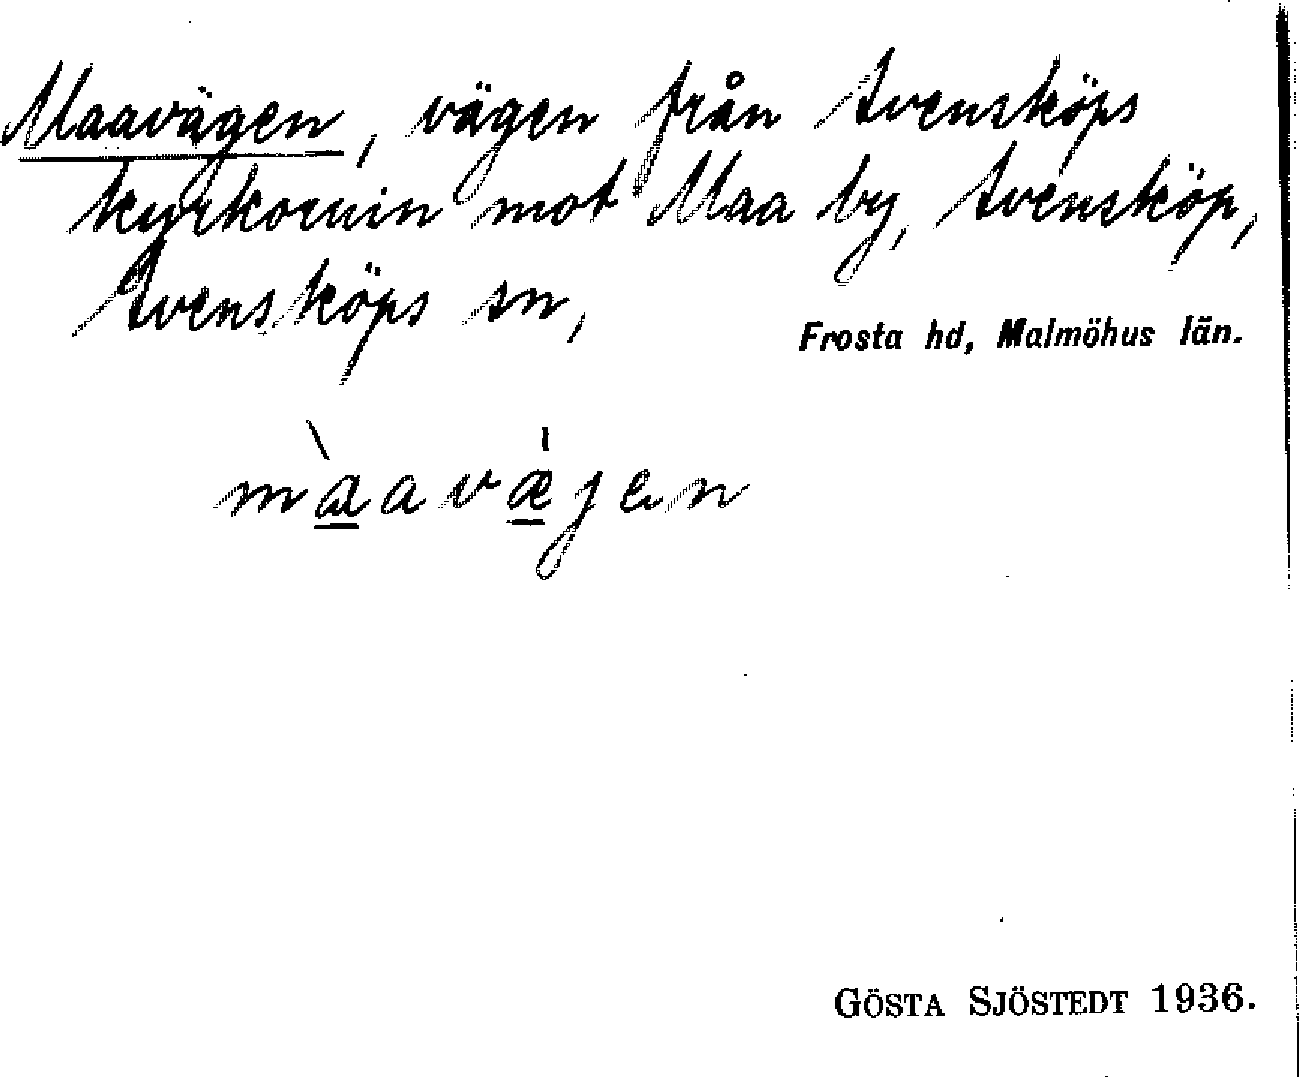 Maavägen, vägen från Svensköps
kyrkoruin mot Maa by, Svensköp,
Svensköps sn,
Frosta hd, Malmöhus län.
mà̱avæ̱̍jen
GÖSTA SJÖSTEDT 1936.